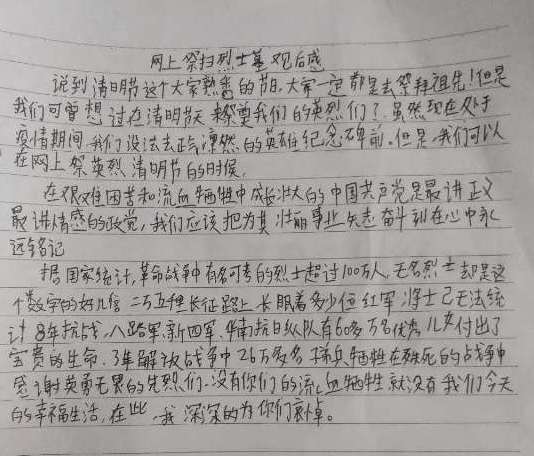 网上祭扫烈士墓观后感
说到清明节这个大家熟悉的节日,大家一定都是去祭拜祖先!但是
我们可曾想过在清明节天来祭奠我们的英烈们?虽然现在处于
疫情期间,我们没法去正气凛然的英雄纪念碑前。但是,我们可以
在网上祭英烈清明节的时候,
在艰难困苦和流血牺牲中成长壮大的中国共产党是最讲正义
最讲情感的政党,我们应该把为其壮丽事业矢志奋斗刻在心中永
远铭记
据国家统计,革命战争中有名可考的烈士超过100万人,无名烈士却是这
个数字的好几倍 二万五千长征路上长眠着多少位红军将士已无法统
计8年抗战,八路军新四军,华南抗日纵队有60多万名优秀儿女付出了
宝贵的生命,3年解放战争中26万多名 牺牲在殊死的战争中
感谢英勇无畏的先烈们.没有你们的流血牺牲就没有我们今天
的幸福生活,在此,我深深的为你们哀悼。